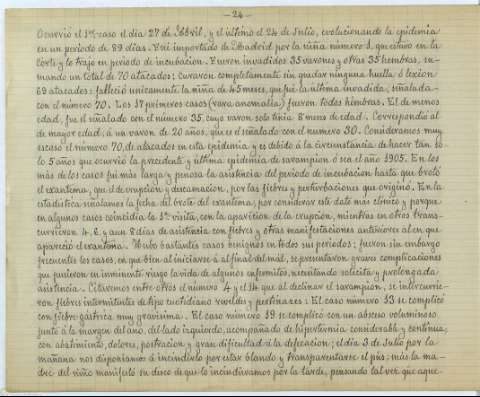 - 24 -
Ocurrió el 1er caso el dia 27 de Abril, y el último el 24 de Julio, evolucionando la epidemia
en un periodo de 89 dias. Fué importado de Madrid por la niña número 1, que estuvo en la
Corte y lo trajo en periodo de incubacion. Fueron invadidos 35 varones y otras 35 hembras, su-
mando un total de 70 atacados: Curaron completamente sin quedar ninguna huella ó lexion
69 atacados: falleció unicamente la niña de 45 meses, que fué la última invadida, señalada
con el número 70. Los 17 primeros casos (rara anomalía) fueron todos hembras. El de menos
edad, fue el señalado con el número 35, cuyo varon solo tenia 8 meses de edad. Correspondió al
de mayor edad, á un varon de 20 años, que es el señalado con el número 30. Consideramos muy
escaso el número 70, de atacados en esta epidemia y es debido á la circunstancia de hacer tan so-
lo 5 años que ocurrió la precedente y última epidemia de sarampion ó sea el año 1905. En los
más de los casos fué más larga y penosa la asistencia del periodo de incubacion hasta que brotó
el exantema, que el de erupcion y descamacion, por las fiebres y perturbaciones que originó. En la
estadistica señalamos la fecha del brote del exantema, por considerar este dato más clinico y porque
en algunos casos coincidia la 1ª visita, con la aparicion de la erupcion, mientras en otros trans-
currieron 4, 6, y aun 8 dias de asistencia con fiebres y otras manifestaciones anteriores al en que
apareció el exantema. Hubo bastantes casos benignos en todos sus periodos; fueron sin embargo
frecuentes los casos, en que bien al iniciarse ó al final del mál, se presentaron graves complicaciones
que pusieron en inminente riesgo la vida de algunos enfermitos, necesitando solicita y prolongada
asistencia. Citaremos entre otros el número 4 y el 14 que al declinar el sarampion, se intercurrie-
ron fiebres intermitentes de tipo cuotidiano rebeldes y pertinaces: El caso número 13 se complicó
con fiebre gástrica muy gravisima. El caso número 19 se complicó con un absceso voluminoso
junto á la margen del ano, del lado izquierdo, acompañado de hipertermia considerable y continua,
con abatimiento, dolores, postracion y gran dificultad á la defecacion; el dia 3 de Julio por la
mañana nos disponiamos á incindirlo por estar blando y transparentarse el pús; más la ma-
dre del niño manifestó su deseo de que lo incindieramos por la tarde, pensando tal vez que aque-